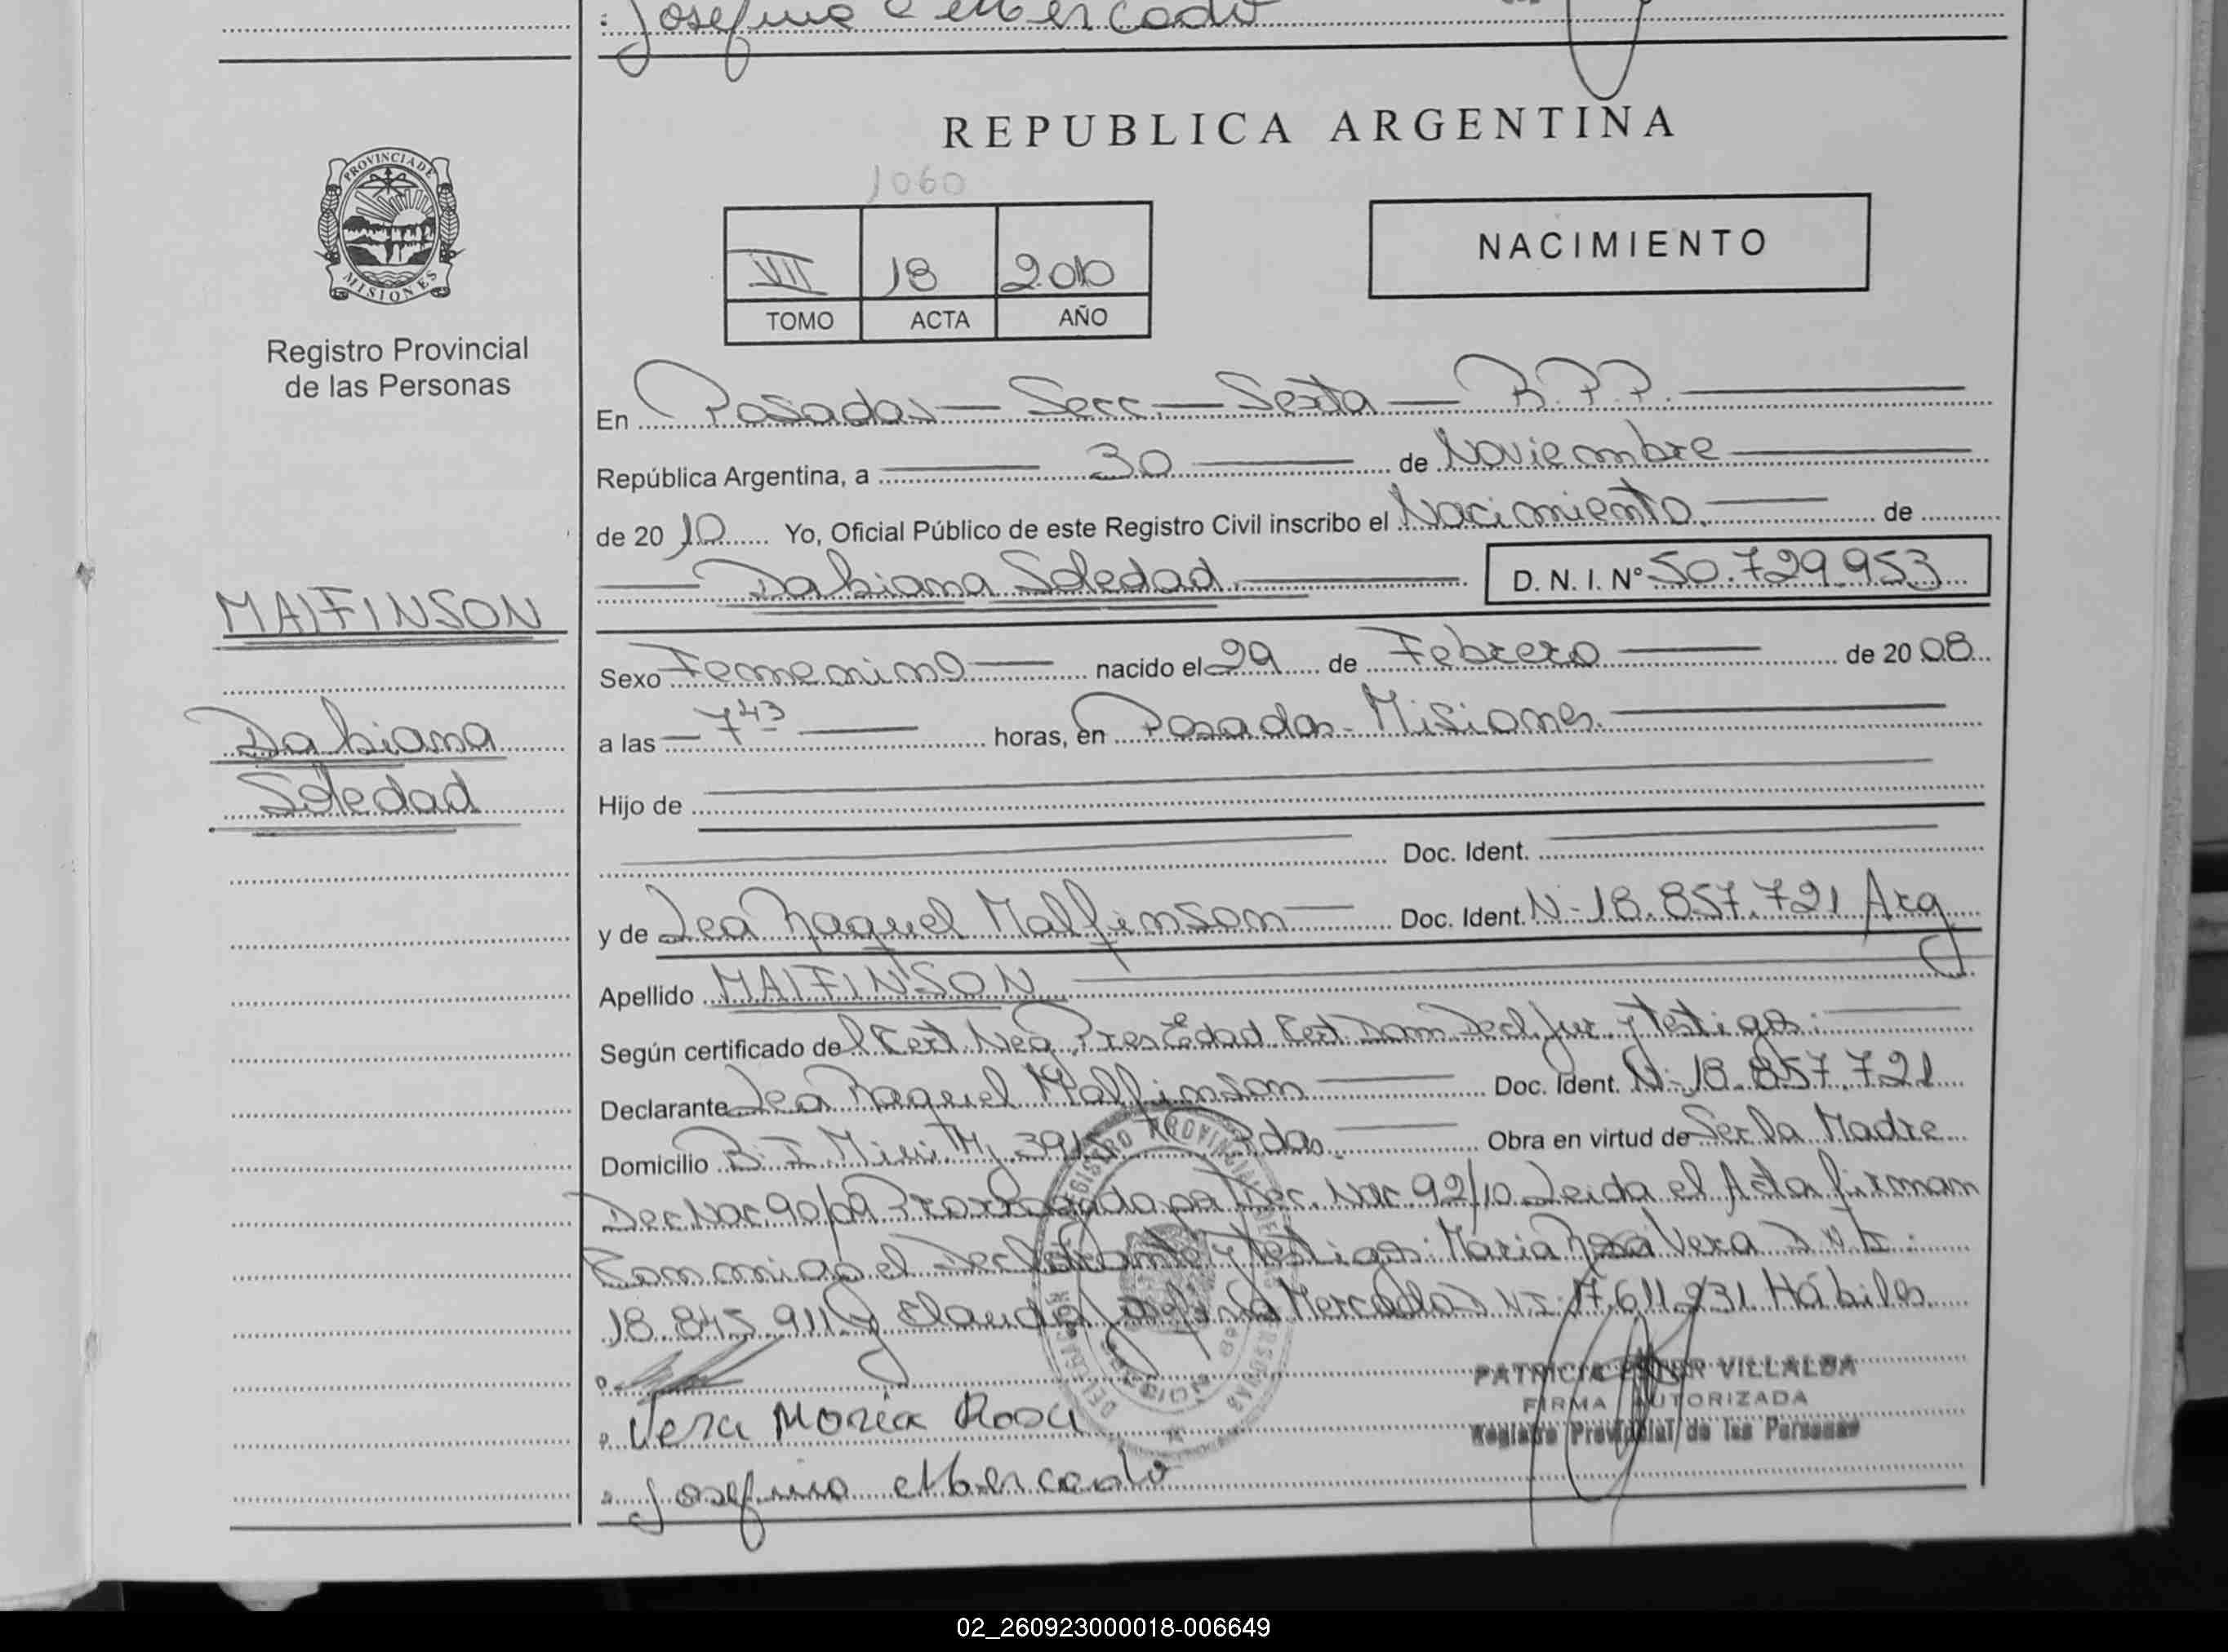 : Josefina Mercado
REPUBLICA ARGENTINA
1060
PROVINCIA DE MISIONES
Registro Provincial
de las Personas
VII 18 2010
TOMO ACTA AÑO
NACIMIENTO
En Posadas - Secc. - Sexta - R.P.P.
República Argentina, a 30 de Noviembre
de 2010 Yo, Oficial Público de este Registro Civil inscribo el Nacimiento. de
Dahiana Soledad. D. N. I. Nº 50.729.953
MALFINSON
Dahiana
Soledad
Sexo Femenino nacido el 29 de Febrero de 2008
a las 7 43 horas, en Posadas - Misiones.
Hijo de
Doc. Ident.
y de Lea Raquel Malfinson Doc. Ident. Nº 18.857.721 Arg
Apellido MALFINSON
Según certificado del Cert. Neg. Pres Edad Cert. Dom Decl. Jur. y Testigos.
Declarante Lea Raquel Malfinson Doc. Ident. Nº 18.857.721
Domicilio B. I. Mini. Pdas. Obra en virtud de Ser la Madre
Dec Nac 90/09 Prorrogado por Dec. Nac. 92/10 Leida el Acta firman
Conmigo el Declarante y Testigos: Maria Rosa Vera D N I:
18.845.911 y Claudia Josefina Mercado D N I: 17.611.931 Hábiles
Vera Maria Rosa
Josefina Mercado
PATRICIA ESTER VILLALBA
FIRMA AUTORIZADA
Registro Provincial de las Personas
REGISTRO PROVINCIAL DE LAS PERSONAS
02_260923000018-006649